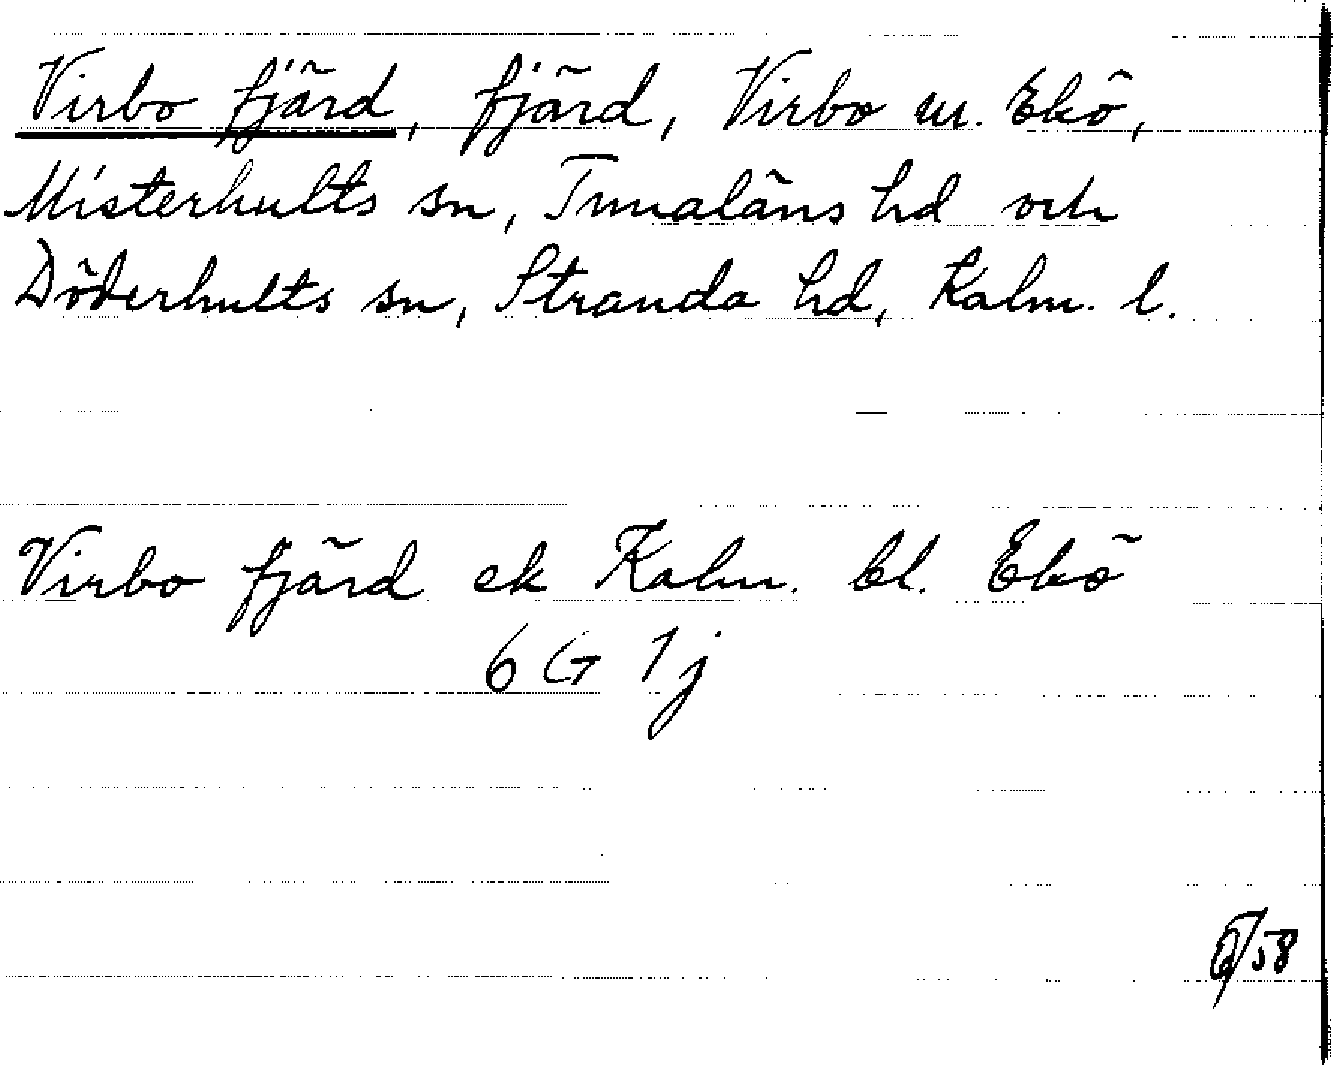 Virbo fjärd, fjärd, Virbo m. Ekö,
Misterhults sn, Tunaläns hd och
Döderhults sn, Stranda hd, Kalm. l.
Virbo fjärd ek Kalm. bl. Ekö
6 G 1 j
58